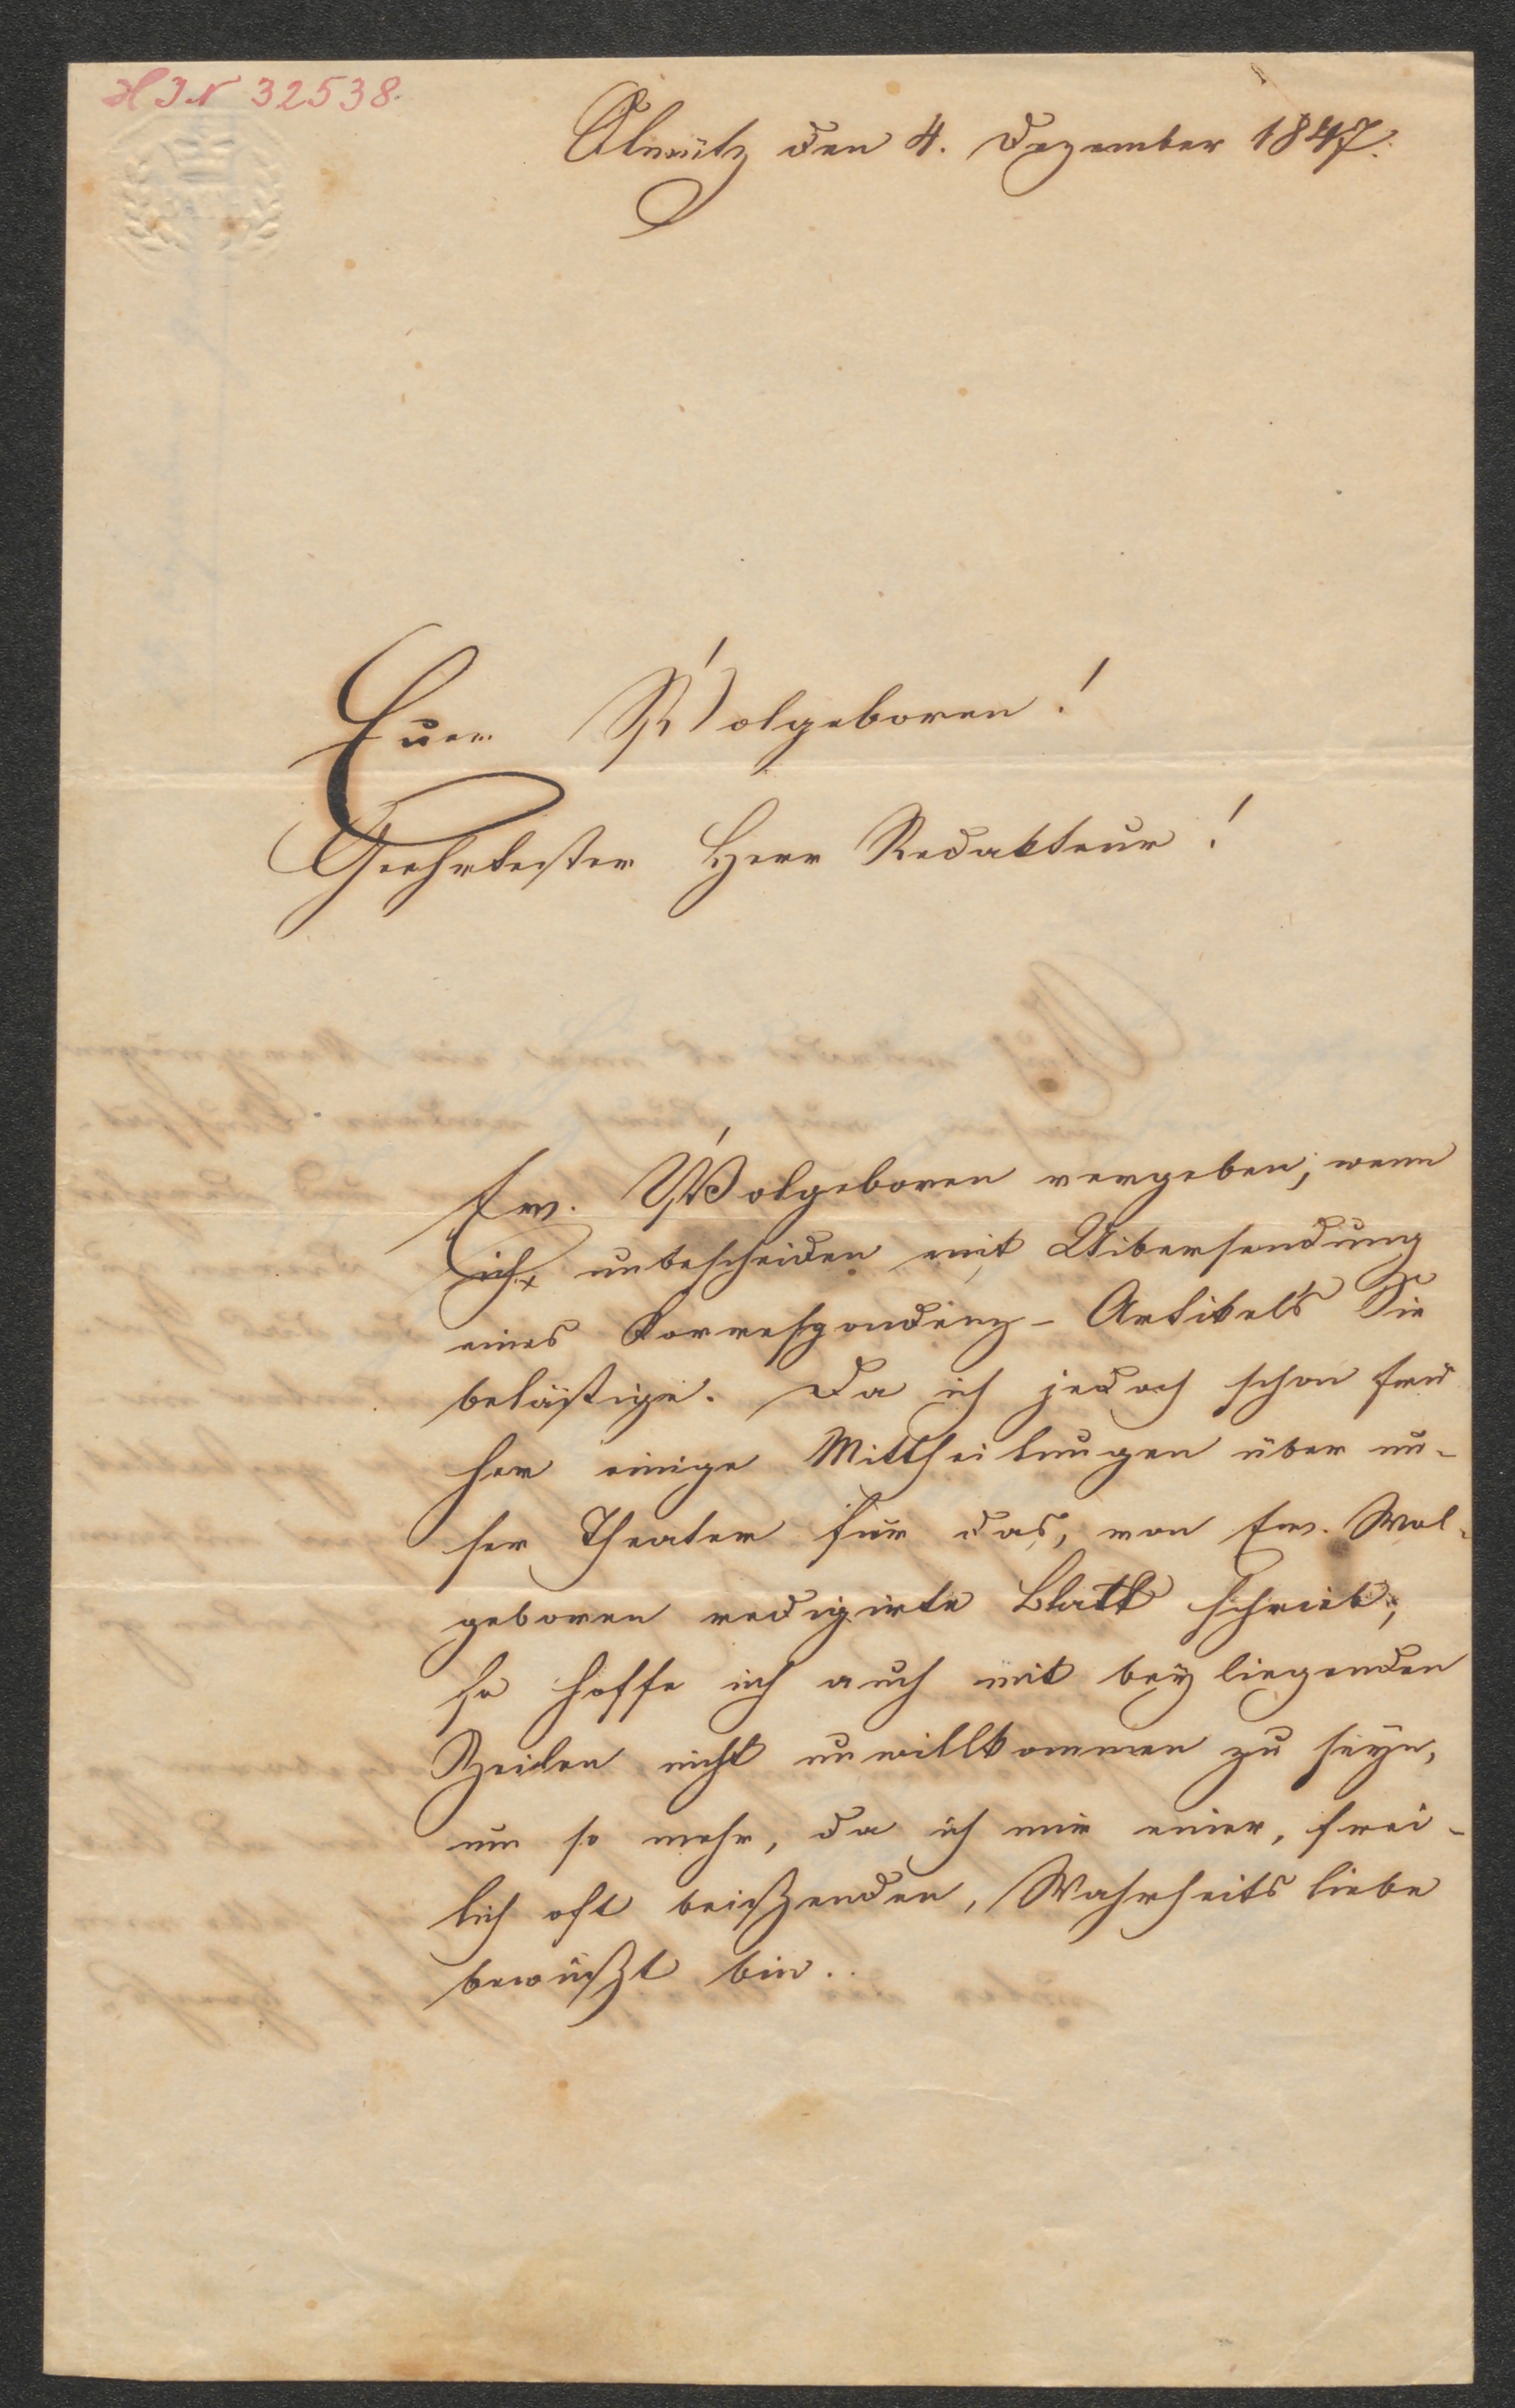 H I N 32538.
Olmütz den 4. Dezember 1847.
Euer Wolgeboren!
Geehrtester Herr Redakteur!
Ew. Wolgeboren vergeben, wenn
ich unbescheiden mit Uibersendung
eines Korrespondenz-Artikels Sie
belästige. Da ich jedoch schon frü
her einige Mittheilungen über un-
ser Theater für das, von Ew. Wol-
geboren redigirte Blatt schrieb,
so hoffe ich auch mit beyliegenden
Zeilen nicht unwillkommen zu seyn,
um so mehr, da ich mir einer, frei-
lich oft beißenden, Wahrheitsliebe
bewußt bin.